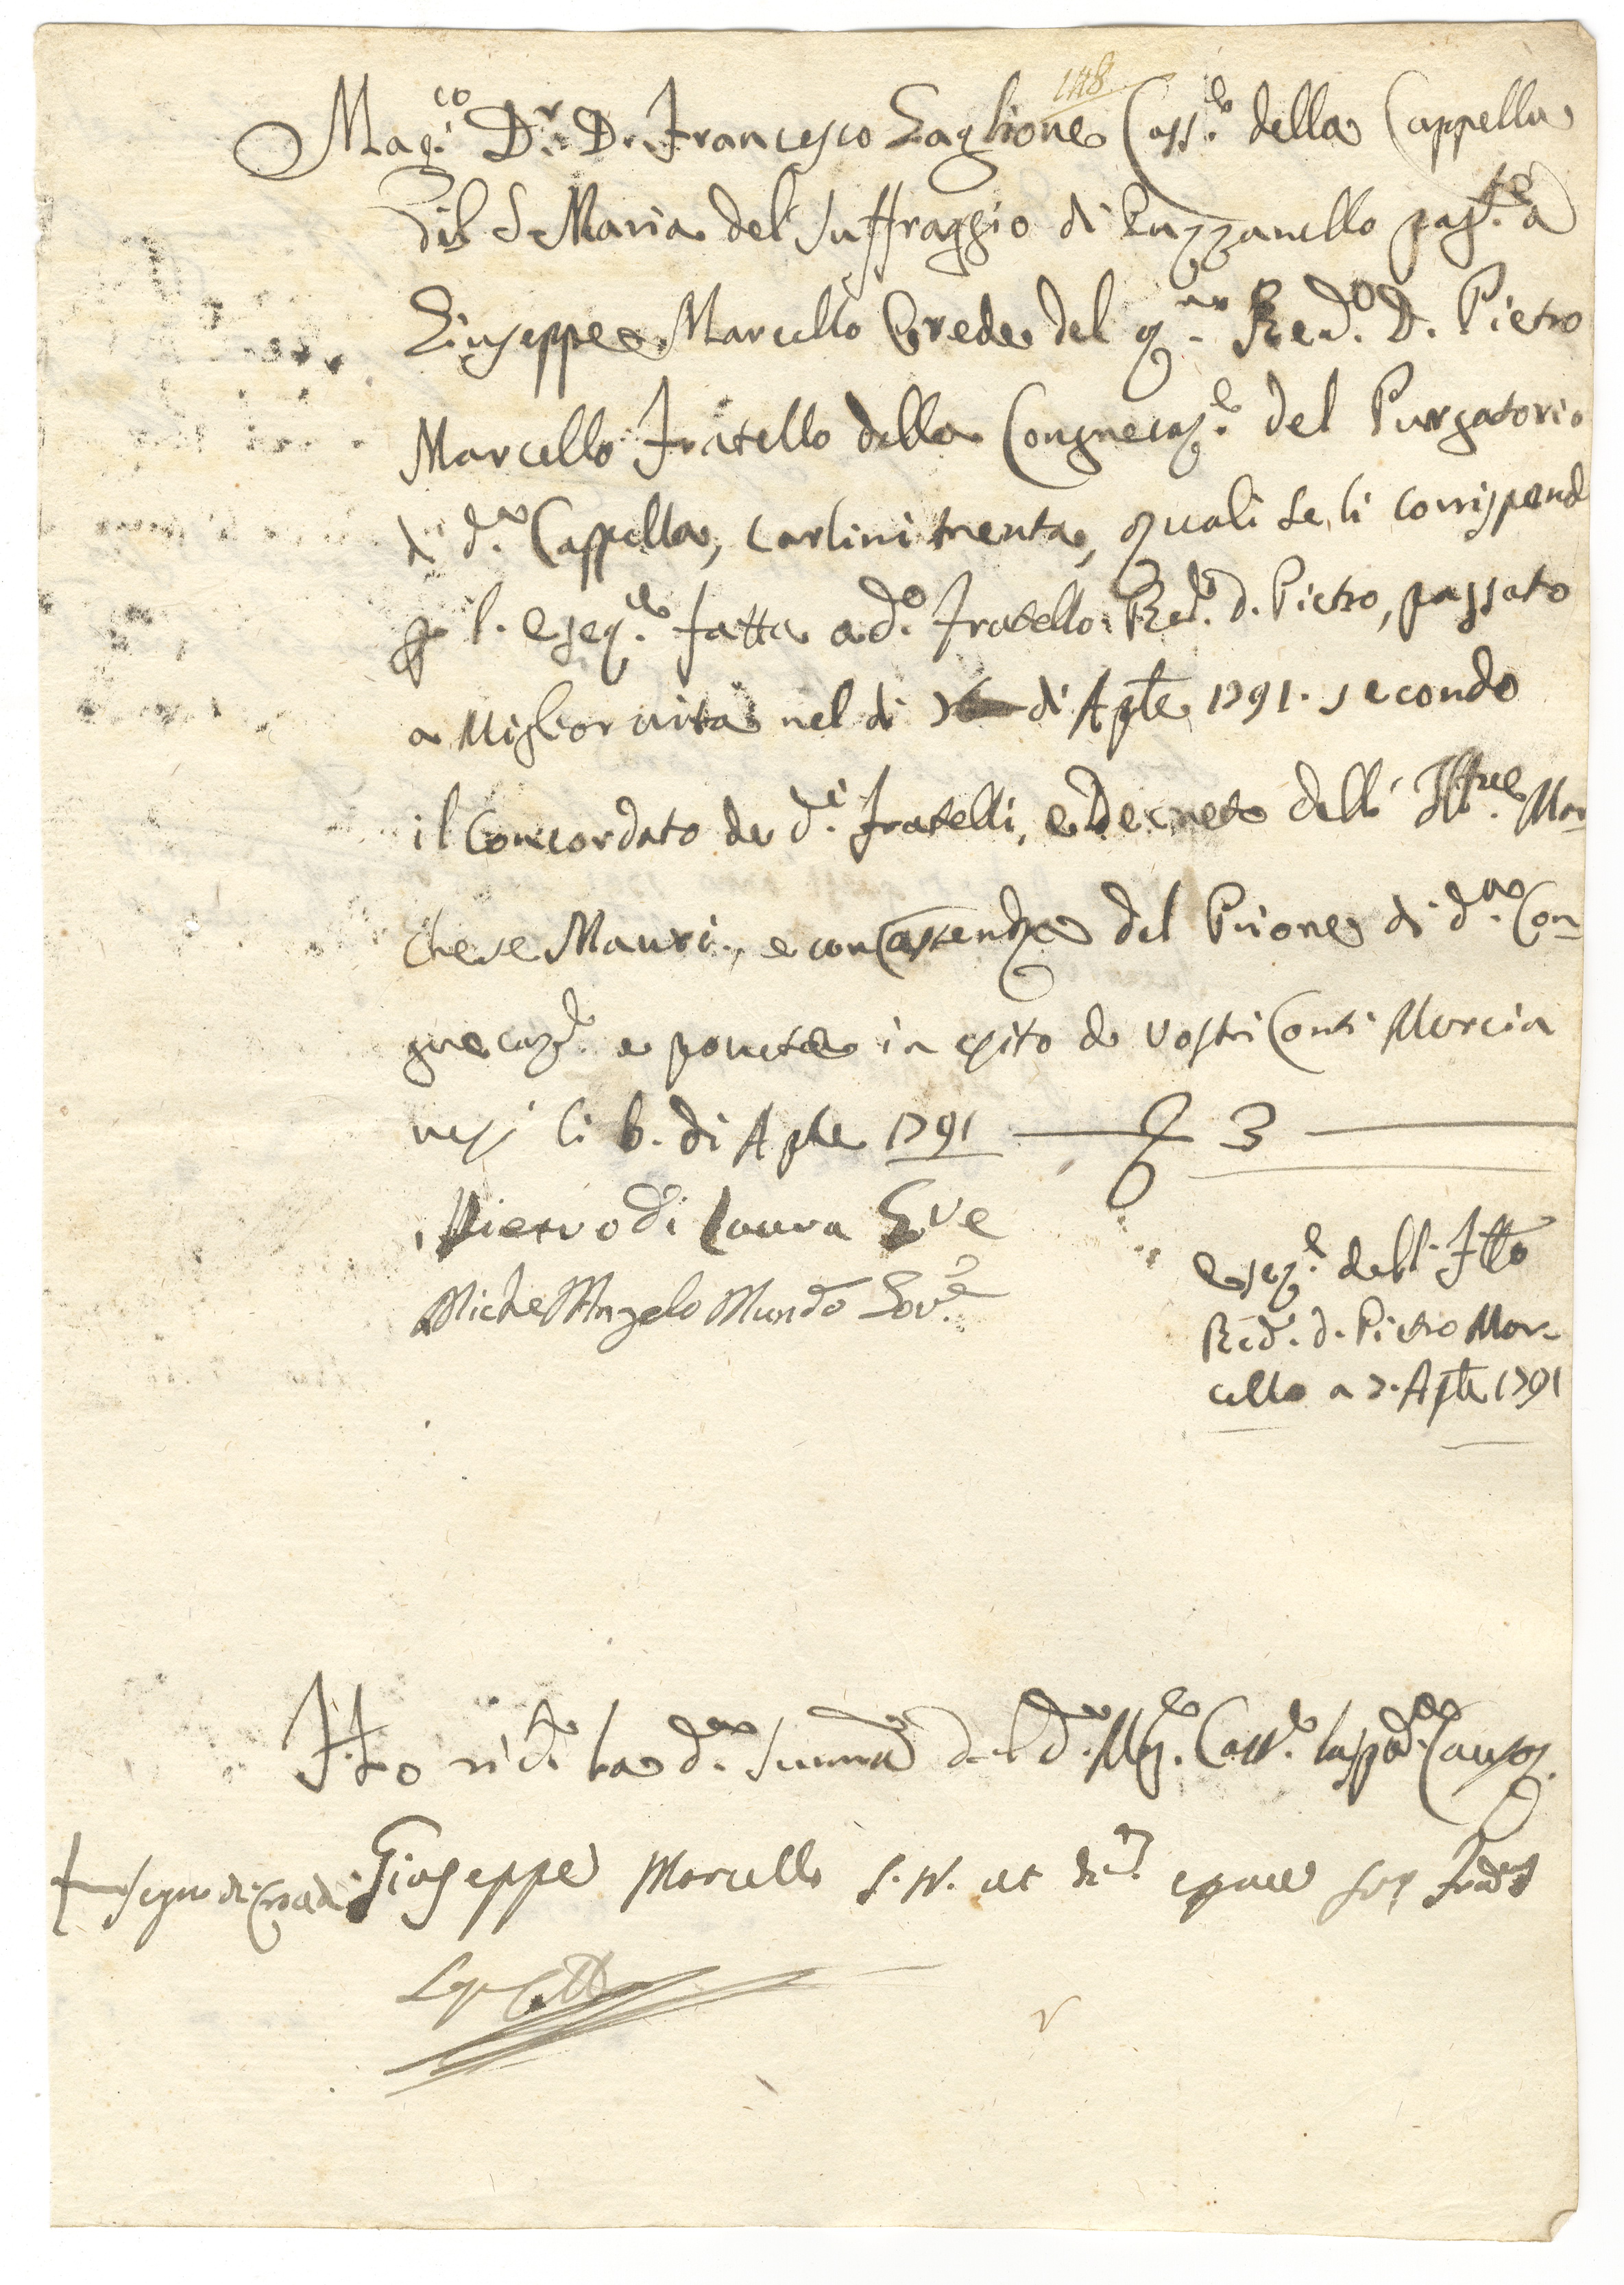 148
Mag.co D.r D. Francesco Gaglione Cass.e della Cappella
di S. Maria del Suffraggio di Puzzanello pag.te a
Giuseppe Marcello Erede del q.m Red.o D. Pietro
Marcello Fratello della Congregaz.e del Purgatorio
di d.a Cappella, carlini trenta, quali se li corrispond
p l'eseq.e fatta a d.o Fratello Red.o d. Pietro, passato
a Miglior vita nel di di Aple 1791. secondo
il Concordato de d.i fratelli, e Decreto dell' Ill.re Mar-
chese Mauri, e con del Priore di d.a Con-
gregaz.e e ponete in esito de vostri Conti Mercia
nesi li 6. di Aple 1791 — 3 —
Pietro di Laura Gve
Michel'Angelo Mundo Gov.e
eseq.e dell'
Red.o d. Pietro Mar-
cello a 7. Aple 1791
Ho ric.o la d.a summa dal d.o Mag.co Cass.e
+ segno di Croce di Giuseppe Marcello